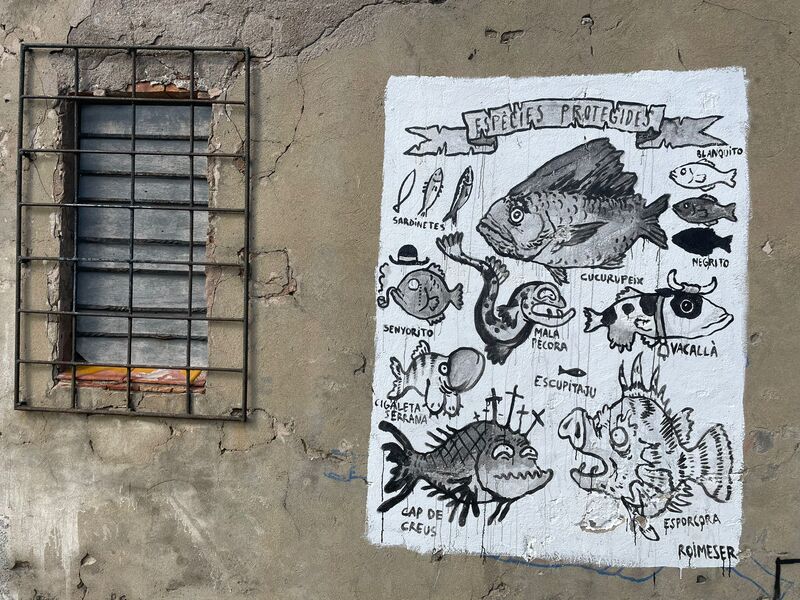 ESPÈCIES PROTEGIDES
BLANQUITO
SARDINETES
NEGRITO
CUCURUPEIX
SENYORITO
MALA
PÉCORA
VACALLÀ
ESCUPITAJU
CIGALETA
SERRANA
CAP DE
CREUS
ESPORCORA
ROIMESER